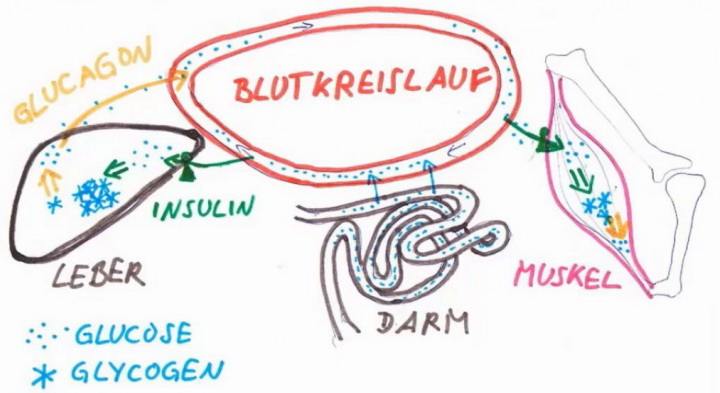 GLUCAGON
BLUTKREISLAUF
INSULIN
LEBER
DARM
MUSKEL
GLUCOSE
GLYCOGEN